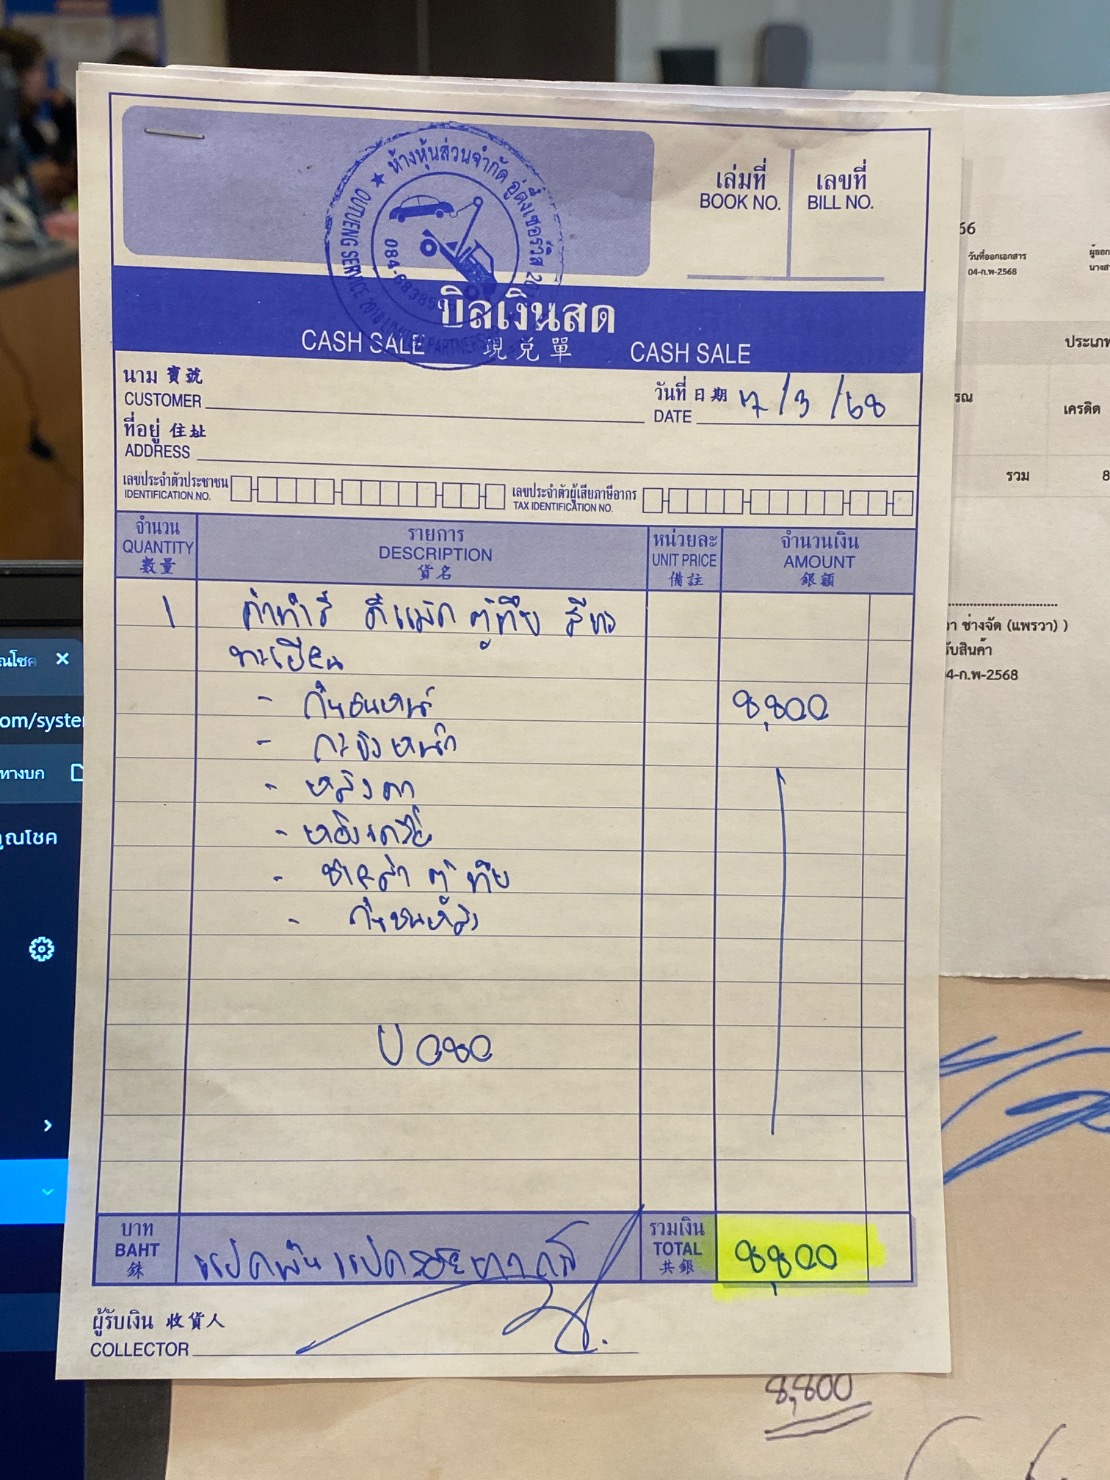 ห้างหุ้นส่วนจำกัด อู่ตึ๋งเซอร์วิส
OUTUENG SERVICE
เล่มที่
BOOK NO.
เลขที่
BILL NO.
บิลเงินสด
CASH SALE 現兌單 CASH SALE
นาม 寶號
CUSTOMER
วันที่ 日期 17/3/68
DATE
ที่อยู่ 住址
ADDRESS
เลขประจำตัวประชาชน
IDENTIFICATION NO.
เลขประจำตัวผู้เสียภาษีอากร
TAX IDENTIFICATION NO.
จำนวน
QUANTITY
數量
รายการ
DESCRIPTION
貨名
หน่วยละ
UNIT PRICE
備註
จำนวนเงิน
AMOUNT
銀額
1 ค่าทำสี ดีแม็ค ตู้ทึบ
ทะเบียน
- กันชนหน้า 8,800
- กระจังหน้า
- หลังคา
-
- ตู้ทึบ
- กันชนหลัง
U 080
บาท
BAHT
銖
แปดพันแปดร้อยบาท
รวมเงิน
TOTAL
共銀
8,800
ผู้รับเงิน 收貨人
COLLECTOR
8,800
66
วันที่ออกเอกสาร
04-ก.พ-2568
เครดิต
รวม 8
ช่างจัด (แพรวา) )
รับสินค้า
04-ก.พ-2568